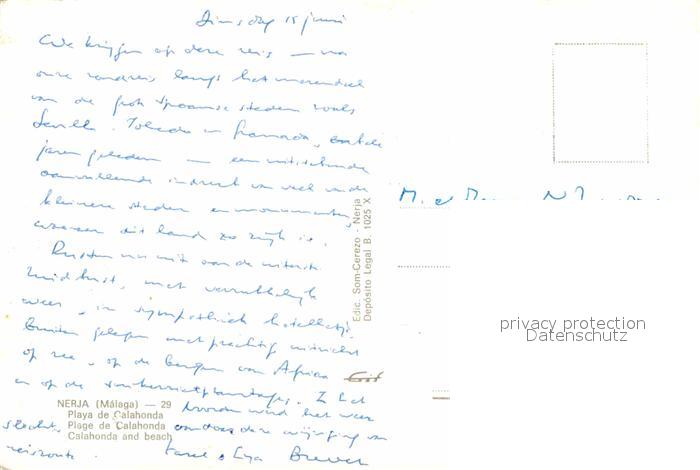 Dinsdag 15 juni
We krijgen op deze reis — na
onze rondreis langs het merendeel
van de grote Spaanse steden zoals
Sevilla, Toledo en Granada, enkele
jaren geleden — een uitstekende
aanvullende indruk van veel van de
kleinere steden en monumenten,
waaraan dit land zo rijk is.
Rusten nu uit aan de uiterste
Zuidkust, met verrukkelijk
weer, in sympathiek hotelletje
buiten gelegen met prachtig uitzicht
op zee, op de bergen van Afrika
en op de suikerrietplantages. In het
Noorden werd het weer
slechts, vandaar deze wijziging van
reisroute.
M. et
Edic. Som-Cerezo - Nerja
Depósito Legal B. 1025 X
privacy protection
Datenschutz
NERJA (Málaga) — 29
Playa de Calahonda
Plage de Calahonda
Calahonda and beach